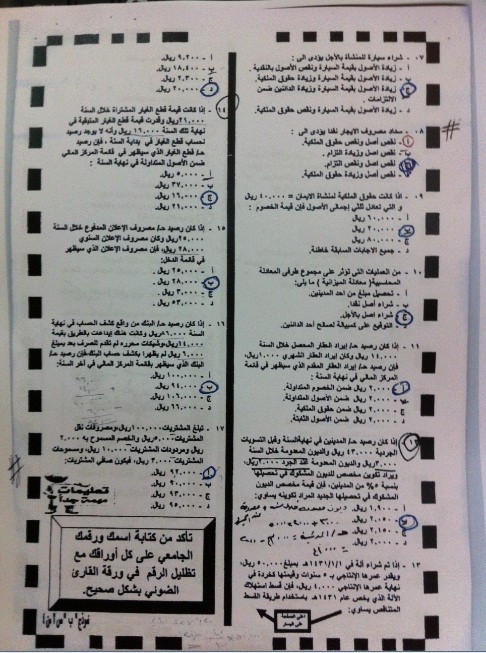 ٠٧ - شراء سيارة للمنشأة بالأجل يؤدى الى :
أ - زيادة الأصول بقيمة السيارة ونقص الأصول بالنقدية .
ب - زيادة الأصول بقيمة السيارة وزيادة حقوق الملكية.
ج - زيادة الأصول بقيمة السيارة وزيادة الدائنين ضمن
الالتزامات .
د - زيادة الأصول بقيمة السيارة ونقص حقوق الملكية.
٠٨ - سداد مصروف الايجار نقدا يؤدى الى :
أ - نقص أصل ونقص حقوق الملكية.
ب - نقص أصل وزيادة التزام .
ج - نقص أصل ونقص التزام.
د - نقص أصل وزيادة حقوق الملكية.
٠٩ - اذا كانت حقوق الملكية لمنشأة الايمان = ٤٠,٠٠٠ ريال
و التي تعادل ثلثي إجمالى الأصول فإن قيمة الخصوم :
أ - ٦٠,٠٠٠ ريال
ب - ٢٠,٠٠٠ ريال
ج - ٨٠,٠٠٠ ريال
د - جميع الاجابات السابقة خاطئة.
١٠ - من العمليات التى تؤثر على مجموع طرفى المعادلة
المحاسبية( معادلة الميزانية ) ما يلى:
أ - تحصيل مبلغ من احد المدينين.
ب - شراء أصل نقدا.
ج - شراء اصل بالأجل.
د - التوقيع على كمبيالة لصالح أحد الدائنين.
١١ - إذا كان رصيد حـ/ إيراد العقار المحصل خلال السنة
١٤,٠٠٠ ريال وكان إيراد العقار الشهري ١,٠٠٠ريال،
فإن رصيد حـ/ إيراد العقار المقدم الذي سيظهر في قائمة
المركز المالي في نهاية السنة :
أ - ٢,٠٠٠ ريال ضمن الخصوم المتداولة.
ب - ٢,٠٠٠ ريال ضمن الأصول المتداولة.
ج - ٢,٠٠٠ ريال ضمن حقوق الملكية.
د - ٢,٠٠٠ ريال ضمن الأصول الثابتة.
١٢ - إذا كان رصيد حـ/ المدينين في نهاية السنة وقبل التسويات
الجردية ٤٣,٠٠٠ ريال والديون المعدومة خلال السنة
٢,٠٠٠ ريال والديون المعدومة عند الجرد ٢,٠٠٠ ريال،
ويراد تكوين مخصص للديون المشكوك في تحصيلها
بنسبة ٥% من المدينين، فإن قيمة مخصص الديون
المشكوك في تحصيلها الجديد المراد تكوينه يساوي:
أ - ١,٩٠٠ ريال
ب - ٢,٠٥٠ ريال
ج - ٢,١٥٠ ريال
د - ٢,٠٠٠ ريال
١٣ - إذا تم شراء آلة في ١٤٣١/١/١هـ بمبلغ ٥٠,٠٠٠ ريال،
ويقدر عمرها الإنتاجي بـ ٥ سنوات وقيمتها كخردة في
نهاية عمرها الإنتاجي ٤,٠٠٠ ريال، فإن قسط استهلاك
الآلة الذي يخص عام ١٤٣١هـ باستخدام طريقة القسط
المتناقص يساوي:
أ - ٩,٢٠٠ ريال.
ب - ١٨,٤٠٠ ريال.
ج - ٢,٣٠٠ ريال.
د - ٢٠,٠٠٠ ريال.
١٤ - إذا كانت قيمة قطع الغيار المشتراة خلال السنة
٢١,٠٠٠ريال وقدرت قيمة قطع الغيار المتبقية في
نهاية تلك السنة ١٦,٠٠٠ ريال وأنه لا يوجد رصيد
لحساب قطع الغيار في بداية السنة ، فإن رصيد
حـ/ قطع الغيار الذي سيظهر في قائمة المركز المالي
ضمن الأصول المتداولة في نهاية السنة :
أ - ٥,٠٠٠ ريال.
ب - ٣٧,٠٠٠ ريال.
ج - ١٦,٠٠٠ ريال.
د - ٢١,٠٠٠ ريال.
١٥ - إذا كان رصيد حـ/ مصروف الإعلان المدفوع خلال السنة
٢٥,٠٠٠ريال وكان مصروف الإعلان السنوي
٢٨,٠٠٠ ريال، فإن مصروف الإعلان الذي سيظهر
في قائمة الدخل:
أ - ٢٥,٠٠٠ ريال .
ب - ٢٨,٠٠٠ ريال .
ج - ٣,٠٠٠ ريال .
د - ٥٣,٠٠٠ ريال .
١٦ - إذا كان رصيد حـ/ البنك من واقع كشف الحساب في نهاية
السنة ١٠٢,٠٠٠ريال وكانت هناك إيداعات بالطريق بقيمة
١٤,٠٠٠ريال،وشيكات محررة لم تقدم للصرف بعد بمبلغ
٦,٠٠٠ ريال لم يظهرا بكشف حساب البنك،فإن رصيد حـ/
البنك الذي سيظهر بقائمة المركز المالي في آخر السنة:
ب - ٩٤,٠٠٠ ريال
١٧ - تبلغ المشتريات ١٠٠,٠٠٠ريال،ومصروفات نقل
المشتريات ٥,٠٠٠ريال والخصم المسموح به ٢,٠٠٠
ريال ومردودات المشتريات ١٠,٠٠٠ ريال، ومسموحات
المشتريات ٣,٠٠٠ ريال، فيكون صافي المشتريات:
أ - ٩٢,٠٠٠ ريال
ب - ٩٠,٠٠٠ ريال
ج - ٩٣,٠٠٠ ريال
د - ٩٥,٠٠٠ ريال
تعليمات
مهمة جداً
تأكد من كتابة اسمك ورقمك
الجامعي على كل أوراقك مع
تظليل الرقم في ورقة القارئ
الضوئي بشكل صحيح.
نموذج "ب"